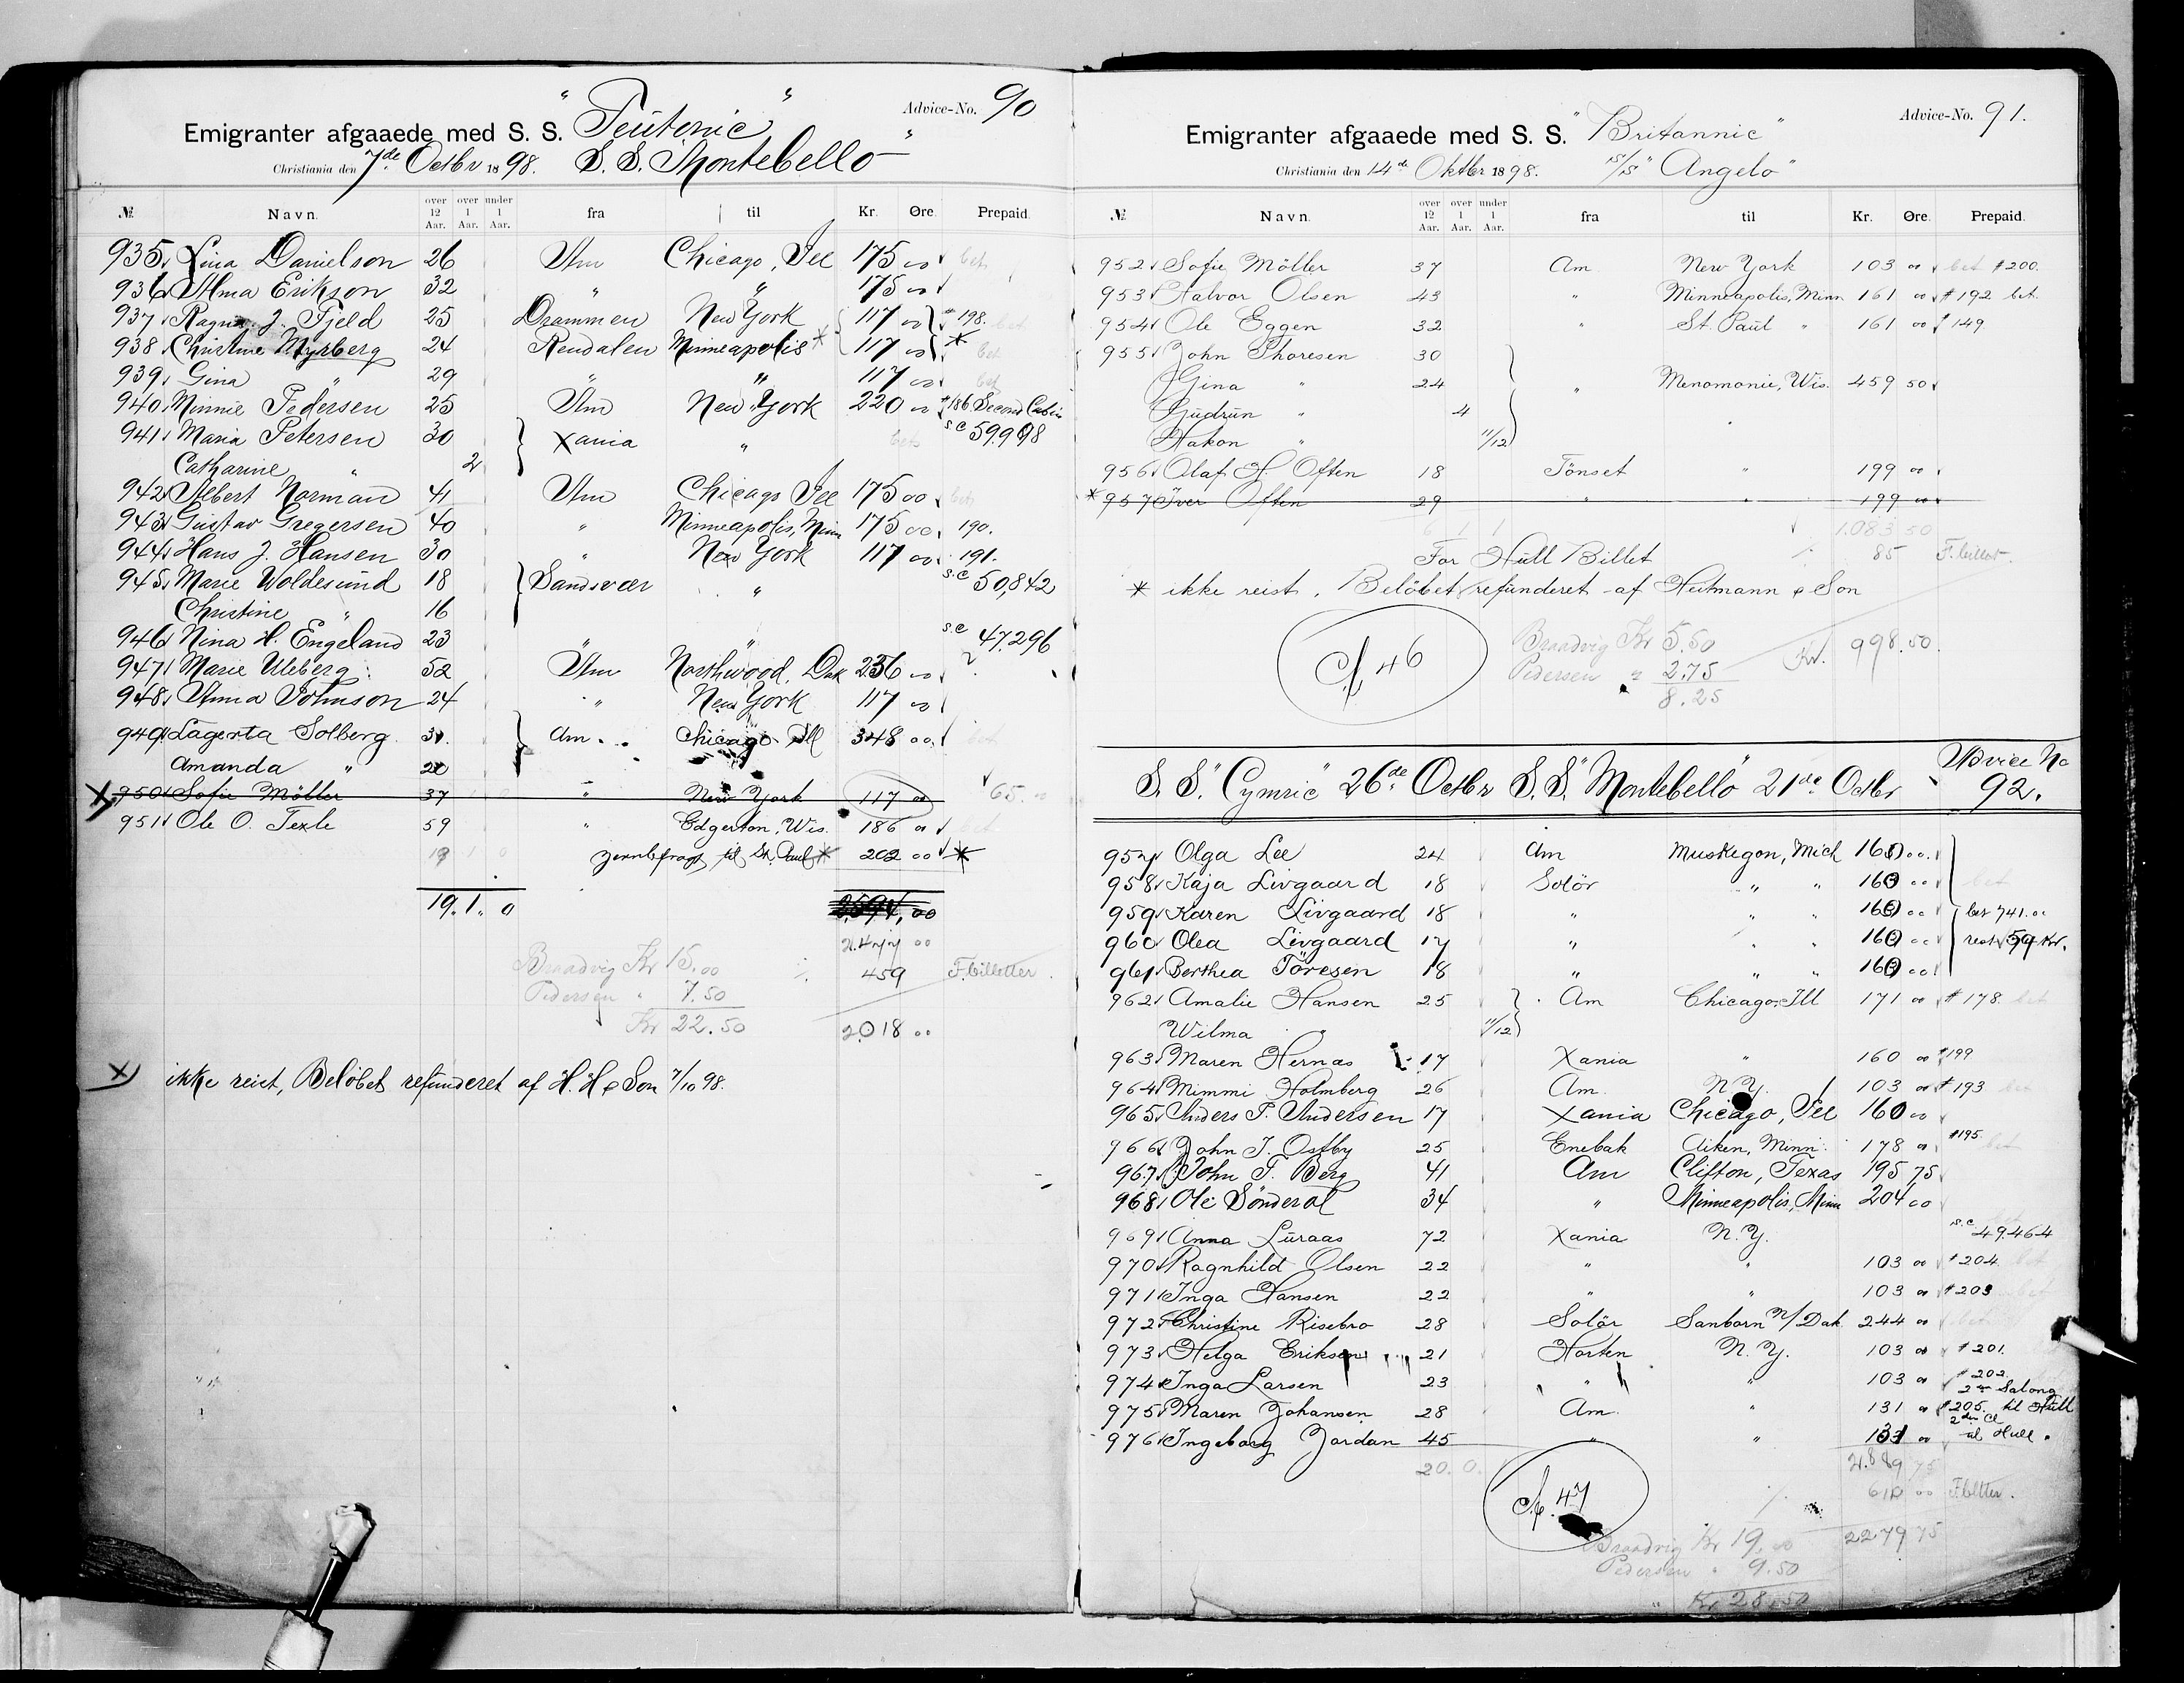 Emigranter afgaaede med S. S. "Teutonic" Advice-No. 90
Christiania den 7de Octbr 1898. S. S. Montebello"
№ Navn. over 12 Aar. over 1 Aar. under 1 Aar. fra til Kr. Øre. Prepaid.
935 Lina Danielson 26 Am Chicago, Ill 175 00 bet
936 Alma Erikson 32 " " 175 00
937 Ragna J. Fjeld 25 Drammen New York 117 00 # 198. bet
938 Christine Myrberg 24 Rendalen Minneapolis * 117 00 * bet
939 Gina " 29 " " 117 00 bet
940 Minnie Pedersen 25 Am New York 220 00 # 186 Second Cabin
941 Maria Petersen 30 Xania " bet s.c 59.998
Catharine " 2
942 Albert Norman 41 Am Chicago Ill 175 00 bet
943 Gustav Gregersen 40 " Minneapolis, Minn 175 00 190.
944 Hans J. Hansen 30 " New York 117 00 191.
945 Marie Woldesund 18 Sandsvær " s.c 50,842
Christine " 16
946 Nina H. Engeland 23 " " s.c 47.296
947 Marie Uleberg 52 Am Northwood, Dak 236 00
948 Anna Johnson 24 " New York 117 00
949 Lagerta Solberg 31. Am. Chicago Ill 348 00 bet
Amanda " 20
X 950 Sofie Möller 37 " New York 117 00 65.
951 Ole O. Texle 59 " Edgerton, Wis. 186 00 bet
19 1 0 Jernbefragt til St. Paul * 202 00 *
19. 1. 0 2,594,00
2.477 00
Braadvig Kr 15.00 459 F.billetter.
Pedersen " 7.50
Kr 22.50 2018 00
X ikke reist, Beløbet refunderet af H. H & Son 7/10 98.
Emigranter afgaaede med S. S. "Britannic" Advice-No. 91.
Christiania den 14de Oktbr 1898. S/S "Angelo"
№ Navn. over 12 Aar. over 1 Aar. under 1 Aar. fra til Kr. Øre. Prepaid.
952 Sofie Möller 37 Am New York 103 00 bet # 200.
953 Halvor Olsen 43 " Minneapolis, Minn 161 00 # 192 bet.
954 Ole Eggen 32 " St. Paul " 161 00 # 149
955 John Thoresen 30
Gina " 24 " Menomonie, Wis. 459 50
Gudrun " 4
Hakon " 11/12
956 Olaf H. Often 18 Tönset " 199 00
* 957 Iver Often 29 " " 199 00
6 1 1 1.083 50
For Hull Billet 85 F.billet.
* ikke reist. Beløbet refunderet af Heitmann & Son
Cf. 46 Braadvig Kr 5.50 Kr. 998.50.
Pedersen " 2.75
8.25
S. S. "Cymric" 26de Octbr S. S. "Montebello" 21de Octbr Advice No 92.
957 Olga Lee 24 Am Muskegon, Mich 160 00
958 Kaja Livgaard 18 Solör " " 160 00 bet
959 Karen Livgaard 18 " " " 160 00 bet 741.00
960 Olea Livgaard 17 " " " 160 00 rest 59 Kr.
961 Berthea Töresen 18 " " " 160 00
962 Amalie Hansen 25 Am Chicago, Ill 171 00 # 178 bet
Wilma " 11/12
963 Maren Hernas 17 Xania " 160 00 # 199
964 Mimmi Holmberg 26 Am. N. Y. 103 00 # 193 bet
965 Anders P. Andersen 17 Xania Chicago, Ill 160 00
966 John J. Ostby 25 Enebak Aiken, Minn. 178 00 # 195 bet
967 John T. Berg 41 Am Clifton, Texas 195 75
968 Ole Sönderal 34 " Minneapolis, Minn 204 00
969 Anna Luraas 72 Xania N. Y. s.c. 49.464
970 Ragnhild Olsen 22 " " 103 00 # 204. bet
971 Inga Hansen 22 " " 103 00 # 203 bet
972 Christine Risebro 28 Solör Sanborn N/Dak 244 00 bet
973 Helga Eriksen 21 Horten N. Y. 103 00 # 201.
974 Inga Larsen 23 " " 103 00 # 202.
975 Maren Johansen 28 Am. " 131 00 # 205. 2den Salong til Hull
976 Ingeborg Jordan 45 " " 131 00 2den Cl til Hull.
20. 0. 2.889 75
610 00 F.billetter.
Cf. 47 2279 75
Braadvig Kr 19.00
Pedersen " 9.50
" Kr 28.50